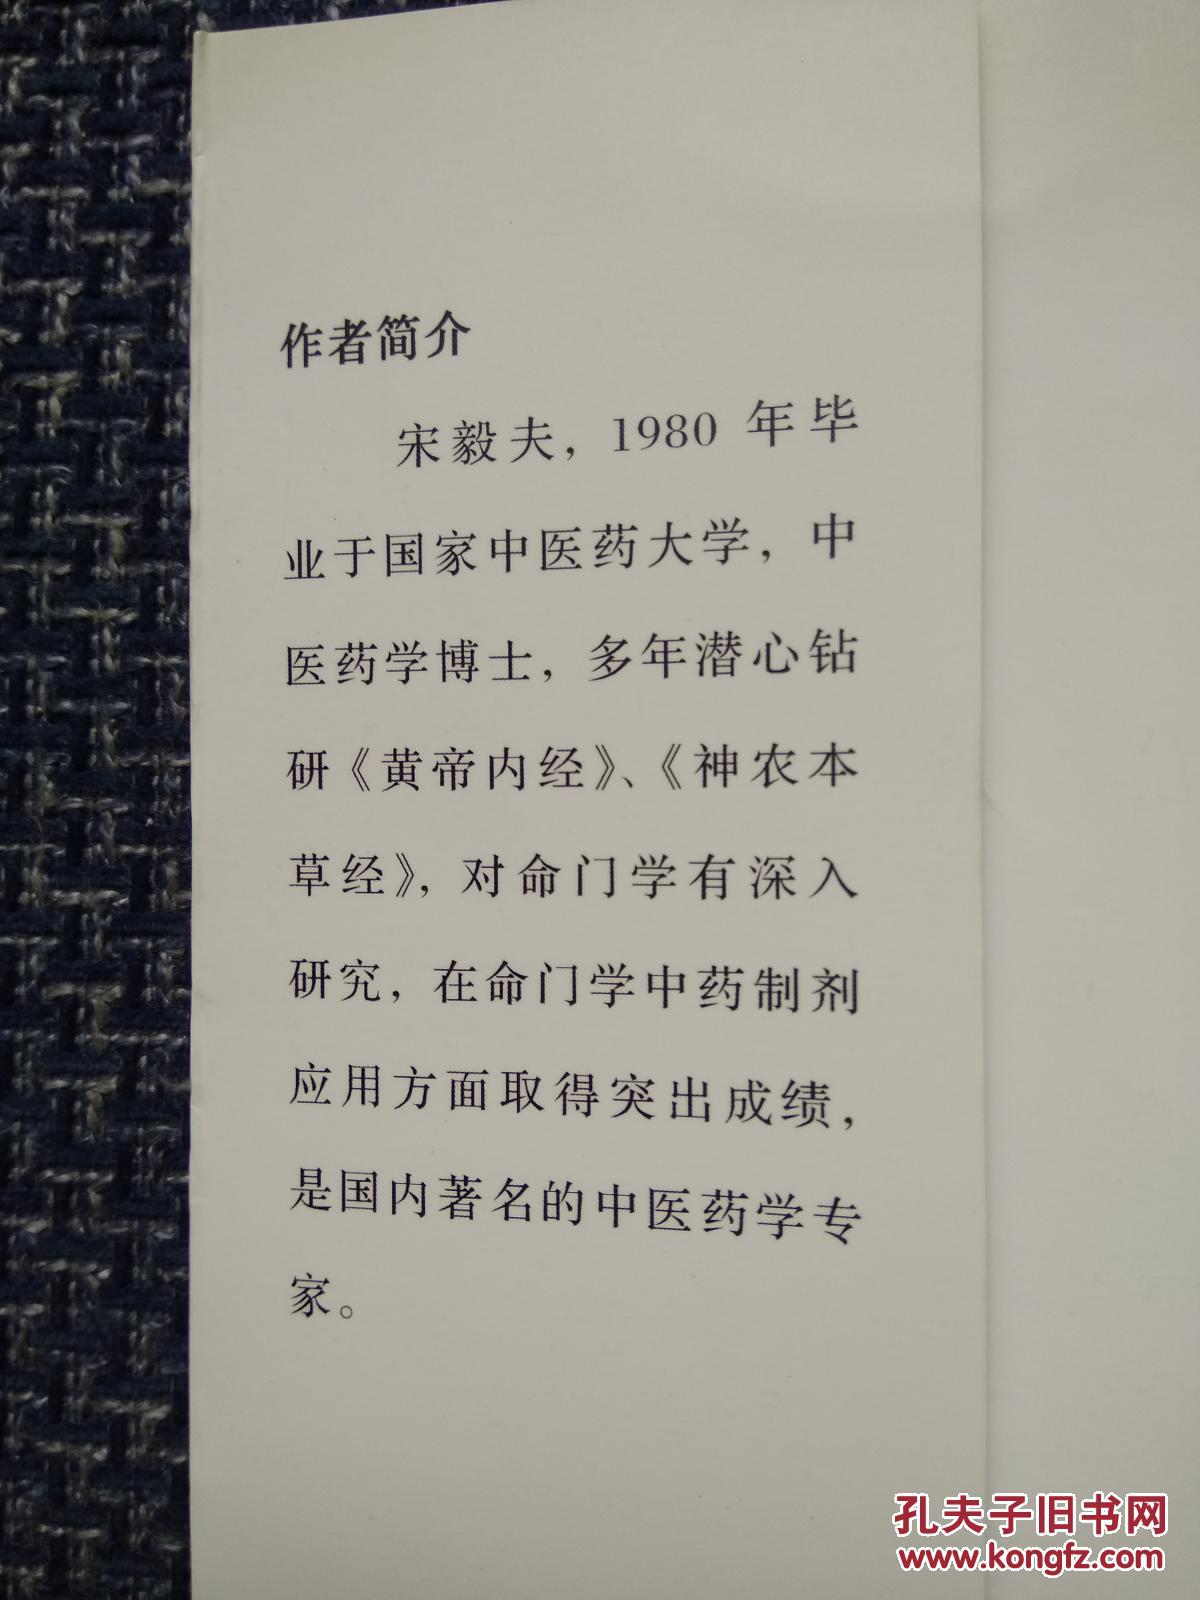 作者简介
宋毅夫，1980 年毕
业于国家中医药大学，中
医药学博士，多年潜心钻
研《黄帝内经》、《神农本
草经》，对命门学有深入
研究，在命门学中药制剂
应用方面取得突出成绩，
是国内著名的中医药学专
家。
孔夫子旧书网
www.kongfz.com